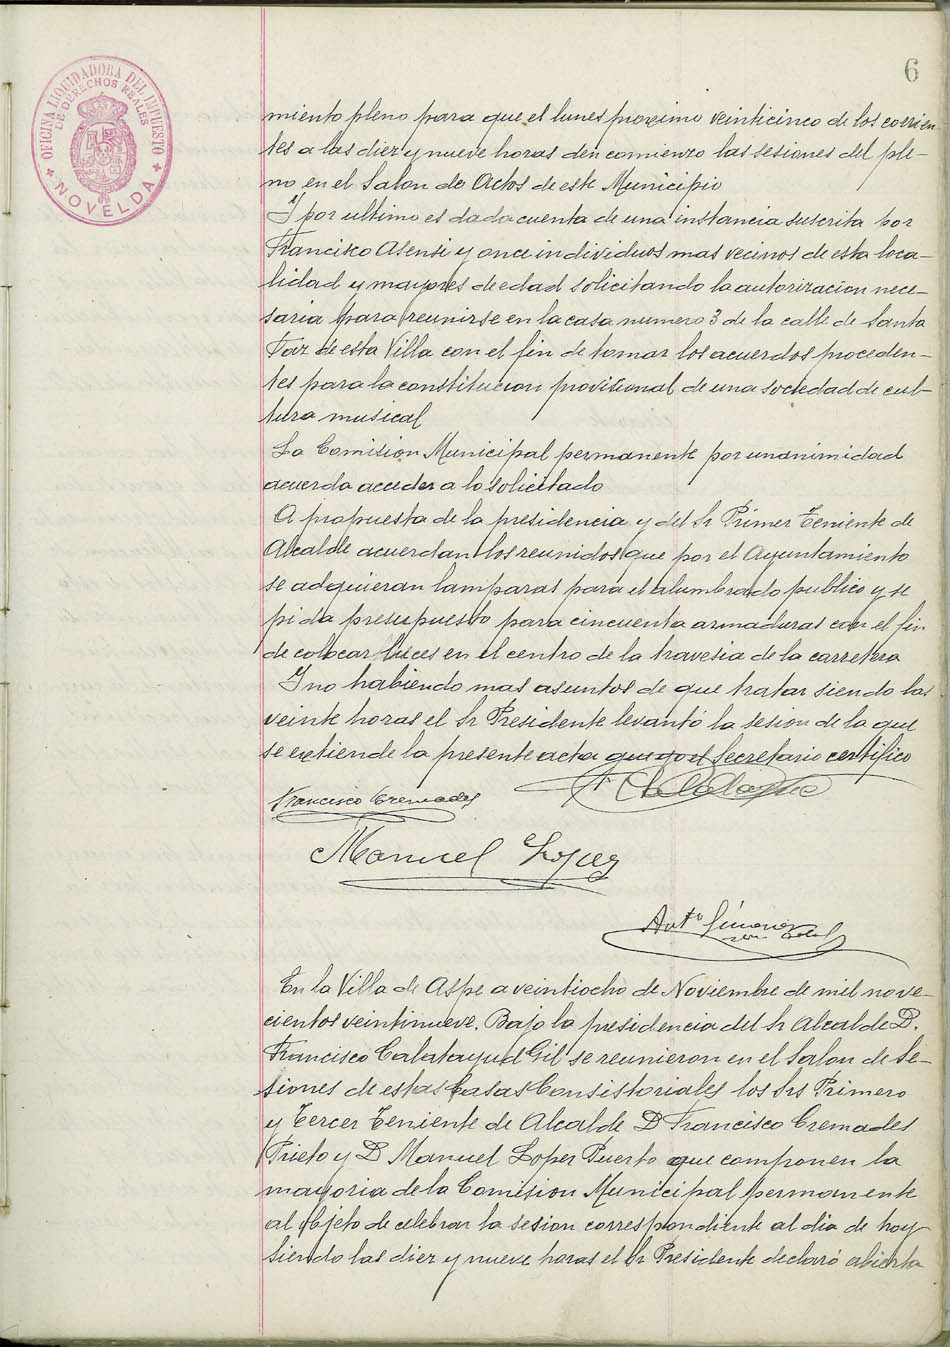 6
OFICINA LIQUIDADORA DEL IMPUESTO
DE DERECHOS REALES
NOVELDA
miento pleno para que el lunes proximo veinticinco de los corrien-
tes a las diez y nueve horas den comienzo las sesiones del ple-
no en el Salon de Actos de este Municipio
Y por ultimo es dada cuenta de una instancia suscrita por
Francisco Asensi y once individuos mas vecinos de esta loca-
lidad y mayores de edad solicitando la autorizacion nece-
saria para reunirse en la casa numero 3 de la calle de Santa
Faz de esta Villa con el fin de tomar los acuerdos proceden-
tes para la constitucion provisional de una sociedad de cul-
tura musical
La Comision Municipal permanente por unanimidad
acuerda acceder a lo solicitado
A propuesta de la presidencia y del Sr Primer Teniente de
Alcalde acuerdan los reunidos que por el Ayuntamiento
se adquieran lamparas para el alumbrado publico y se
pida presupuesto para cincuenta armaduras con el fin
de colocar luces en el centro de la travesia de la carretera
Y no habiendo mas asuntos de que tratar siendo las
veinte horas el Sr Presidente levantó la sesion de la que
se extiende la presente acta que yo el Secretario certifico
Francisco Cremades
Manuel Lopez
Antº Gimenez
En la Villa de Aspe a veintiocho de Noviembre de mil nove-
cientos veintinueve. Bajo la presidencia del Sr Alcalde D.
Francisco Calatayud Gil se reunieron en el Salon de Se-
siones de estas Casas Consistoriales los Srs Primero
y Tercer Teniente de Alcalde D Francisco Cremades
Prieto y D Manuel Lopez Puerto que componen la
mayoria de la Comision Municipal permanente
al objeto de celebrar la sesion correspondiente al dia de hoy
Siendo las diez y nueve horas el Sr Presidente declaró abierta